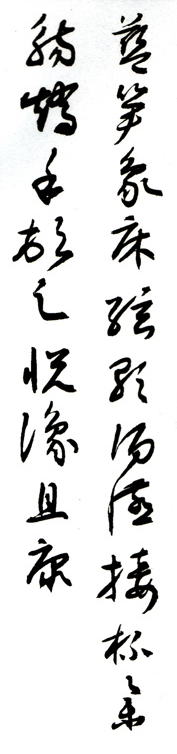 藍笋象床絃歌酒讌接杯舉
觴矯手頓足悅豫且康